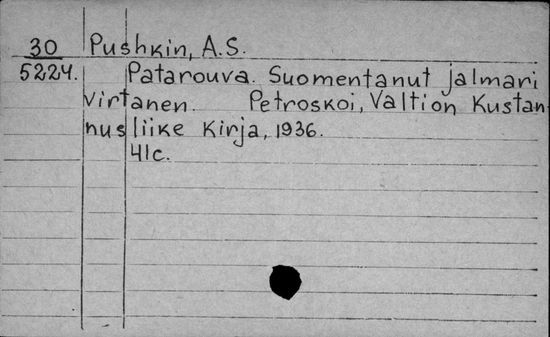 30 Pushkin, A.S.
5224. Patarouva. Suomentanut Jalmari
Virtanen. Petroskoi, Valtion Kustan-
nusliike Kirja, 1936.
41c.